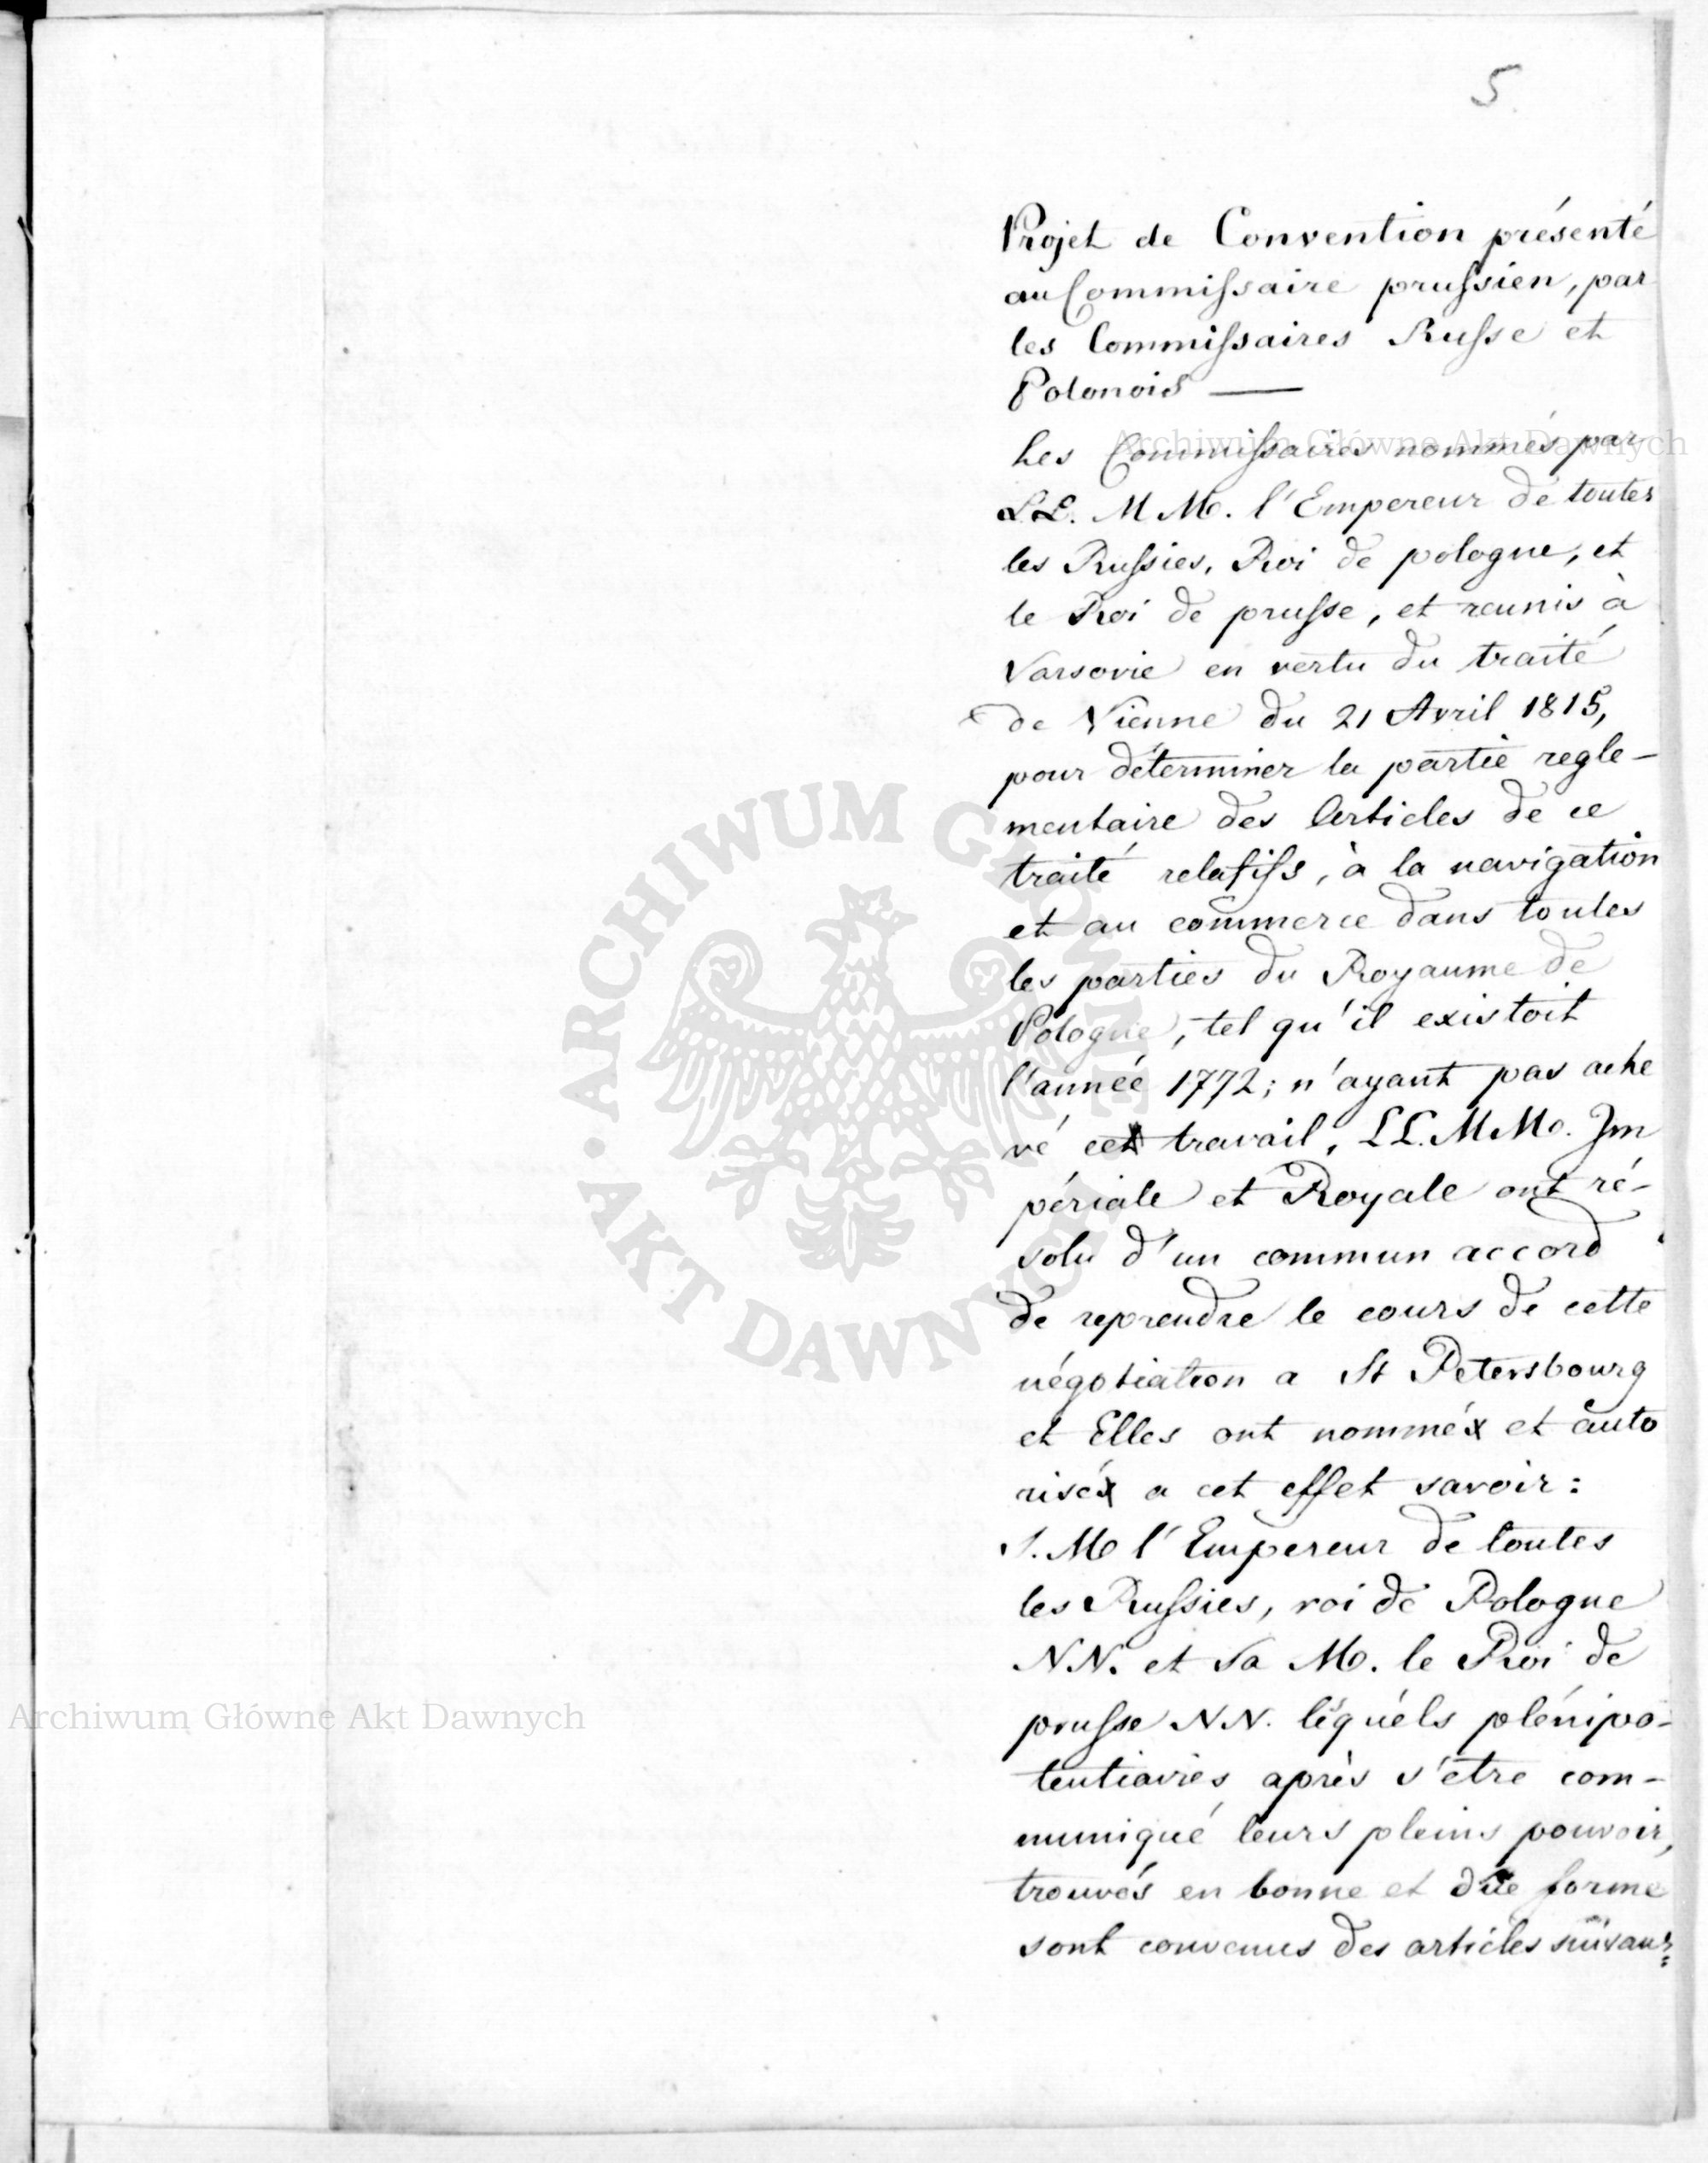 5
Projet de Convention présenté
au Commissaire prussien, par
les Commissaires Russe et
Polonois —
Les Commissaires nommés par
LL. MM. l'Empereur de toutes
les Russies, Roi de pologne, et
le Roi de prusse, et reunis à
Varsovie en vertu du traité
de Vienne du 21 Avril 1815,
pour déterminer la partie regle-
mentaire des Articles de ce
traité relatifs, à la navigation
et au commerce dans toutes
les parties du Royaume de
Pologne, tel qu'il existoit
l'année 1772; n'ayant pas ache
vé cet travail, LL. MM. Im
périale et Royale ont ré-
solu d'un commun accord
de reprendre le cours de cette
négotiation a St Petersbourg
et Elles ont nommé et auto
risé a cet effet savoir:
S. M l'Empereur de toutes
les Russies, roi de Pologne
NN. et Sa M. le Roi de
prusse NN. lesquéls plénipo-
tentiaires après s'etre com-
muniqué leurs pleins pouvoir,
trouvés en bonne et düe forme
sont convenus des articles suivans:
Archiwum Główne Akt Dawnych
ARCHIWUM GŁÓWNE • AKT DAWNYCH
Archiwum Główne Akt Dawnych